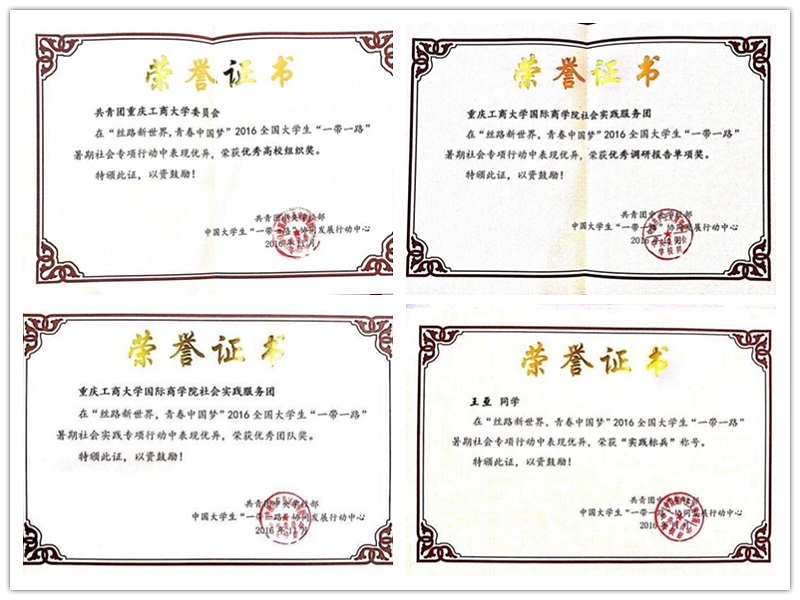 荣誉证书
共青团重庆工商大学委员会
在“丝路新世界，青春中国梦”2016全国大学生“一带一路”
暑期社会专项行动中表现优异，荣获优秀高校组织奖。
特颁此证，以资鼓励！
共青团中央学校部
中国大学生“一带一路”协同发展行动中心
2016年11月
荣誉证书
重庆工商大学国际商学院社会实践服务团
在“丝路新世界，青春中国梦”2016全国大学生“一带一路”
暑期社会专项行动中表现优异，荣获优秀调研报告单项奖。
特颁此证，以资鼓励！
共青团中央学校部
中国大学生“一带一路”协同发展行动中心
2016年11月
荣誉证书
重庆工商大学国际商学院社会实践服务团
在“丝路新世界，青春中国梦”2016全国大学生“一带一路”
暑期社会实践专项行动中表现优异，荣获优秀团队奖。
特颁此证，以资鼓励！
共青团中央学校部
中国大学生“一带一路”协同发展行动中心
2016年11月
荣誉证书
王亚 同学
在“丝路新世界，青春中国梦”2016全国大学生“一带一路”
暑期社会专项行动中表现优异，荣获“实践标兵”称号。
特颁此证，以资鼓励！
共青团中央学校部
中国大学生“一带一路”协同发展行动中心
2016年11月